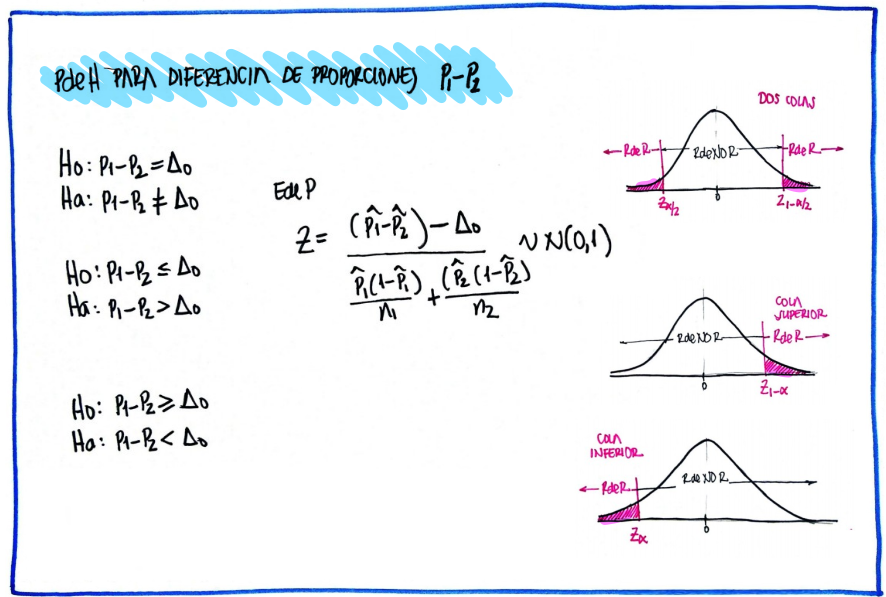 PdeH PARA DIFERENCIA DE PROPORCIONES P₁-P₂
Ho: P₁-P₂ = Δo
Ha: P₁-P₂ ≠ Δo
Ho: P₁-P₂ ≤ Δo
Ha: P₁-P₂ > Δo
Ho: P₁-P₂ ≥ Δo
Ha: P₁-P₂ < Δo
EdeP
Z = (P̂₁-P̂₂) - Δo ~ N(0,1)
P̂₁(1-P̂₁) + (P̂₂(1-P̂₂)
n₁ n₂
DOS COLAS
RdeR RdeNOR RdeR
0
Zα/2 Z1-α/2
COLA
SUPERIOR
RdeNOR RdeR
0 Z1-α
COLA
INFERIOR
RdeR RdeNOR
Zα 0